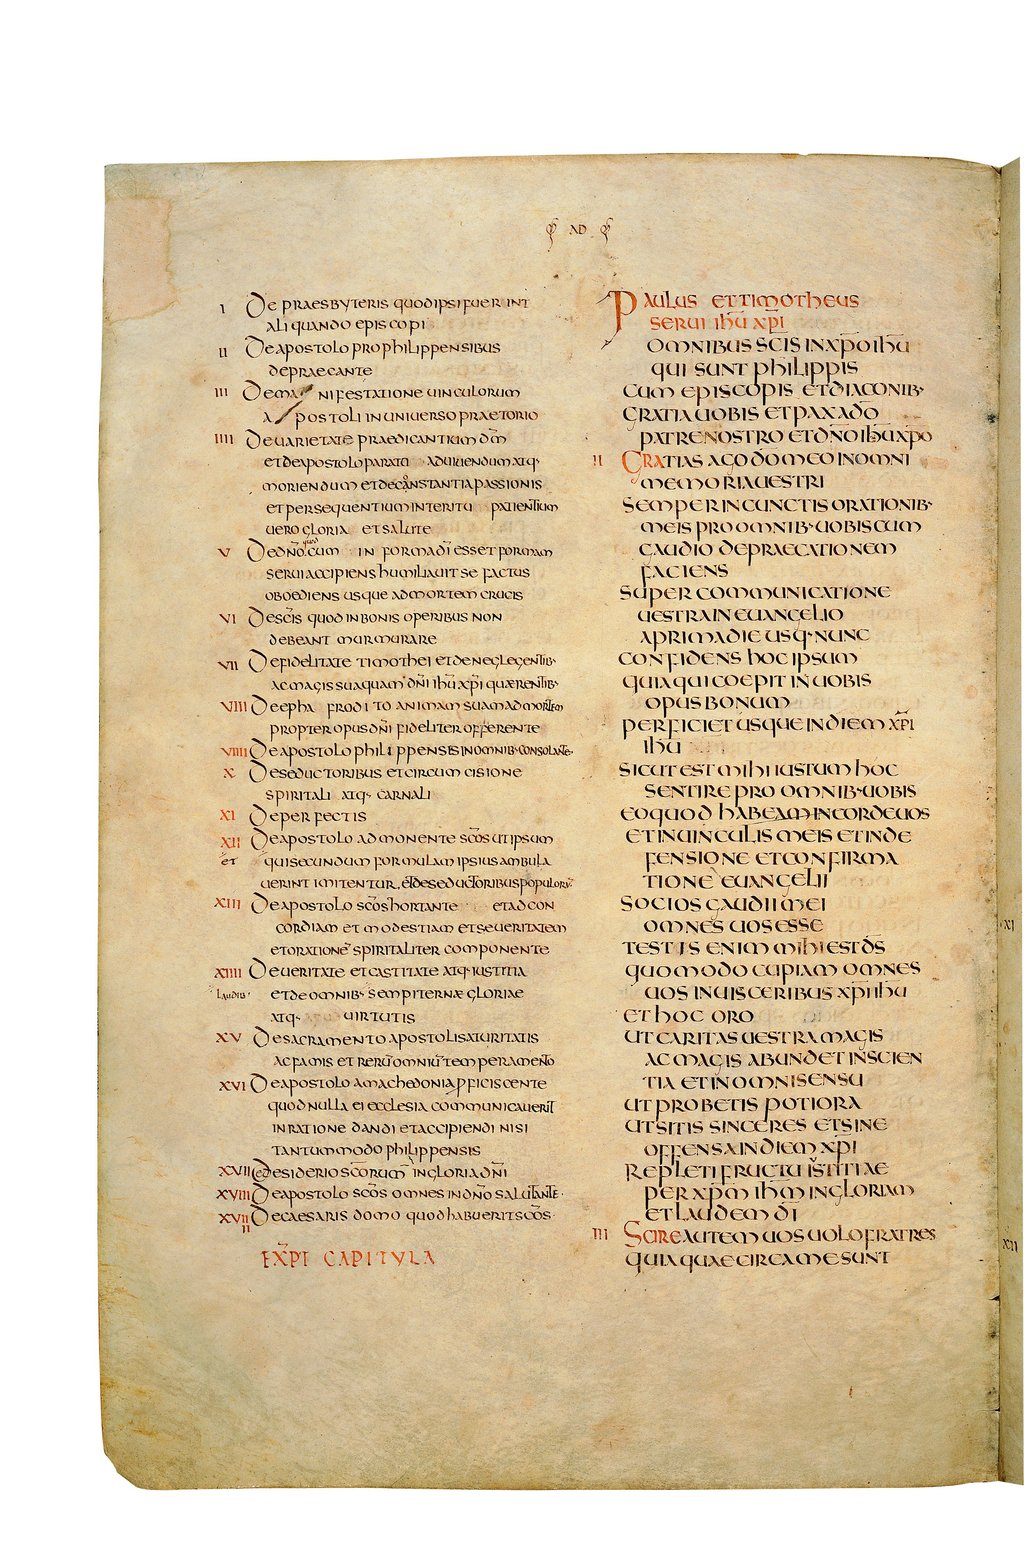 AD
I DE PRAESBYTERIS QUOD IPSI FUERINT
ALIQUANDO EPISCOPI
II DE APOSTOLO PRO PHILIPPENSIBUS
DEPRAECANTE
III DE MANIFESTATIONE UINCULORUM
APOSTOLI IN UNIUERSO PRAETORIO
IIII DE UARIETATE PRAEDICANTIUM DM̄
ET DE APOSTOLO PARATO AD UIUENDUM ATQ·
MORIENDUM ET DE CONSTANTIA PASSIONIS
ET PERSEQUENTIUM INTERITU PATIENTIUM
UERO GLORIA ET SALUTE
V DE DN̄O QUOD CUM IN FORMA DĪ ESSET FORMAM
SERUI ACCIPIENS HUMILIAUIT SE FACTUS
OBOEDIENS USQUE AD MORTEM CRUCIS
VI DE SC̄IS QUOD IN BONIS OPERIBUS NON
DEBEANT MURMURARE
VII DE FIDELITATE TIMOTHEI ET DE NEGLEGENTIB·
AC MAGIS SUA QUAM DN̄I IHŪ XP̄I QUAERENTIB·
VIII DE EPHAFRODITO ANIMAM SUAM AD MORTEM
PROPTER OPUS DN̄I FIDELITER OFFERENTE
VIIII DE APOSTOLO PHILIPPENSIS IN OMNIB· CONSOLANTE·
X DE SEDUCTORIBUS ET CIRCUMCISIONE
SPIRITALI ATQ· CARNALI
XI DE PERFECTIS
XII DE APOSTOLO ADMONENTE SC̄OS UT IPSUM
ET QUI SECUNDUM FORMULAM IPSIUS AMBULA
UERINT IMITENTUR, ET DE SEDUCTORIBUS POPULORŪ
XIII DE APOSTOLO SC̄OS HORTANTE ET AD CON
CORDIAM ET MODESTIAM ET SEUERITATEM
ET ORATIONĒ SPIRITALITER COMPONENTE
XIIII DE UERITATE ET CASTITATE ATQ· IUSTITIA
LAUDIB· ET DE OMNIB· SEMPITERNAE GLORIAE
ATQ· UIRTUTIS
XV DE SACRAMENTO APOSTOLI SATURITATIS
AC FAMIS ET RERŪ OMNIŪ TEMPERAMENTO
XVI DE APOSTOLO A MACHEDONIA PROFICISCENTE
QUOD NULLA EI ECCLESIA COMMUNICAUERIT
IN RATIONE DANDI ET ACCIPIENDI NISI
TANTUMMODO PHILIPPENSIS
XVII DE DESIDERIO SC̄ORUM IN GLORIA DN̄I
XVIII DE APOSTOLO SC̄OS OMNES IN DN̄O SALUTANTE·
XVIIII DE CAESARIS DOMO QUOD HABUERIT SC̄OS·
EXP̄ CAPITULA
PAULUS ET TIMOTHEUS
SERUI IHŪ XP̄I
OMNIBUS SC̄IS IN XP̄O IHŪ
QUI SUNT PHILIPPIS
CUM EPISCOPIS ET DIACONIB·
GRATIA UOBIS ET PAX A DŌ
PATRE NOSTRO ET DN̄O IHŪ XP̄O
II GRATIAS AGO DŌ MEO IN OMNI
MEMORIA UESTRI
SEMPER IN CUNCTIS ORATIONIB·
MEIS PRO OMNIB· UOBIS CUM
GAUDIO DEPRAECATIONEM
FACIENS
SUPER COMMUNICATIONE
UESTRA IN EUANGELIO
A PRIMA DIE USQ· NUNC
CONFIDENS HOC IPSUM
QUIA QUI COEPIT IN UOBIS
OPUS BONUM
PERFICIET USQUE IN DIEM XP̄I
IHŪ
SICUT EST MIHI IUSTUM HOC
SENTIRE PRO OMNIB· UOBIS
EO QUOD HABEAM IN CORDE UOS
ET IN UINCULIS MEIS ET IN DE
FENSIONE ET CONFIRMA
TIONE EUANGELII
SOCIOS GAUDII MEI
OMNES UOS ESSE
TESTIS ENIM MIHI EST DS̄
QUOMODO CUPIAM OMNES
UOS IN UISCERIBUS XP̄I IHŪ
ET HOC ORO
UT CARITAS UESTRA MAGIS
AC MAGIS ABUNDET IN SCIEN
TIA ET IN OMNI SENSU
UT PROBETIS POTIORA
UT SITIS SINCERES ET SINE
OFFENSA IN DIEM XP̄I
REPLETI FRUCTU IUSTITIAE
PER XP̄M IHM̄ IN GLORIAM
ET LAUDEM DĪ
III SCIRE AUTEM UOS UOLO FRATRES
QUIA QUAE CIRCA ME SUNT
XI
XII